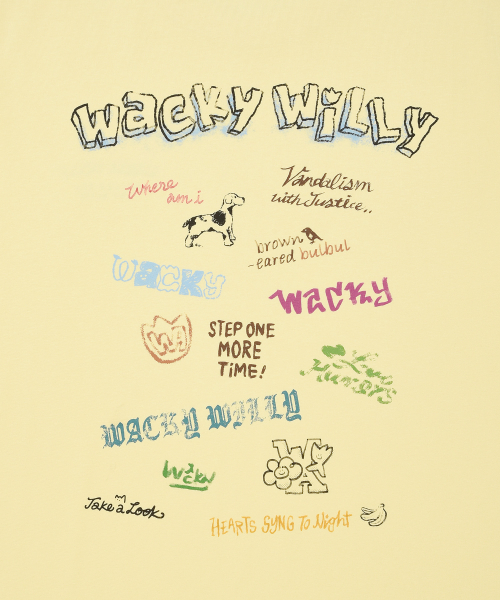 wacky willy
where
am i
Vandalism
with Justice..
brown
-eared bulbul
wacky
wacky
WA
STEP ONE
MORE
TiME!
WACKY WILLY
wacky
WA
Take a Look
HEARTS SYNG To Night